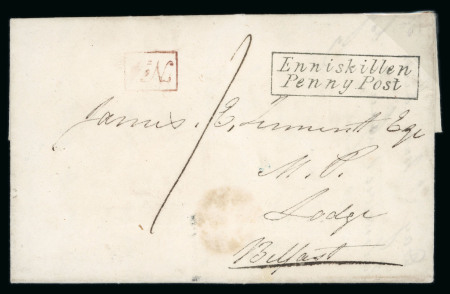 Enniskillen
Penny Post
No.
1
James. E. Tennent Esqe
M. P.
Lodge
Belfast